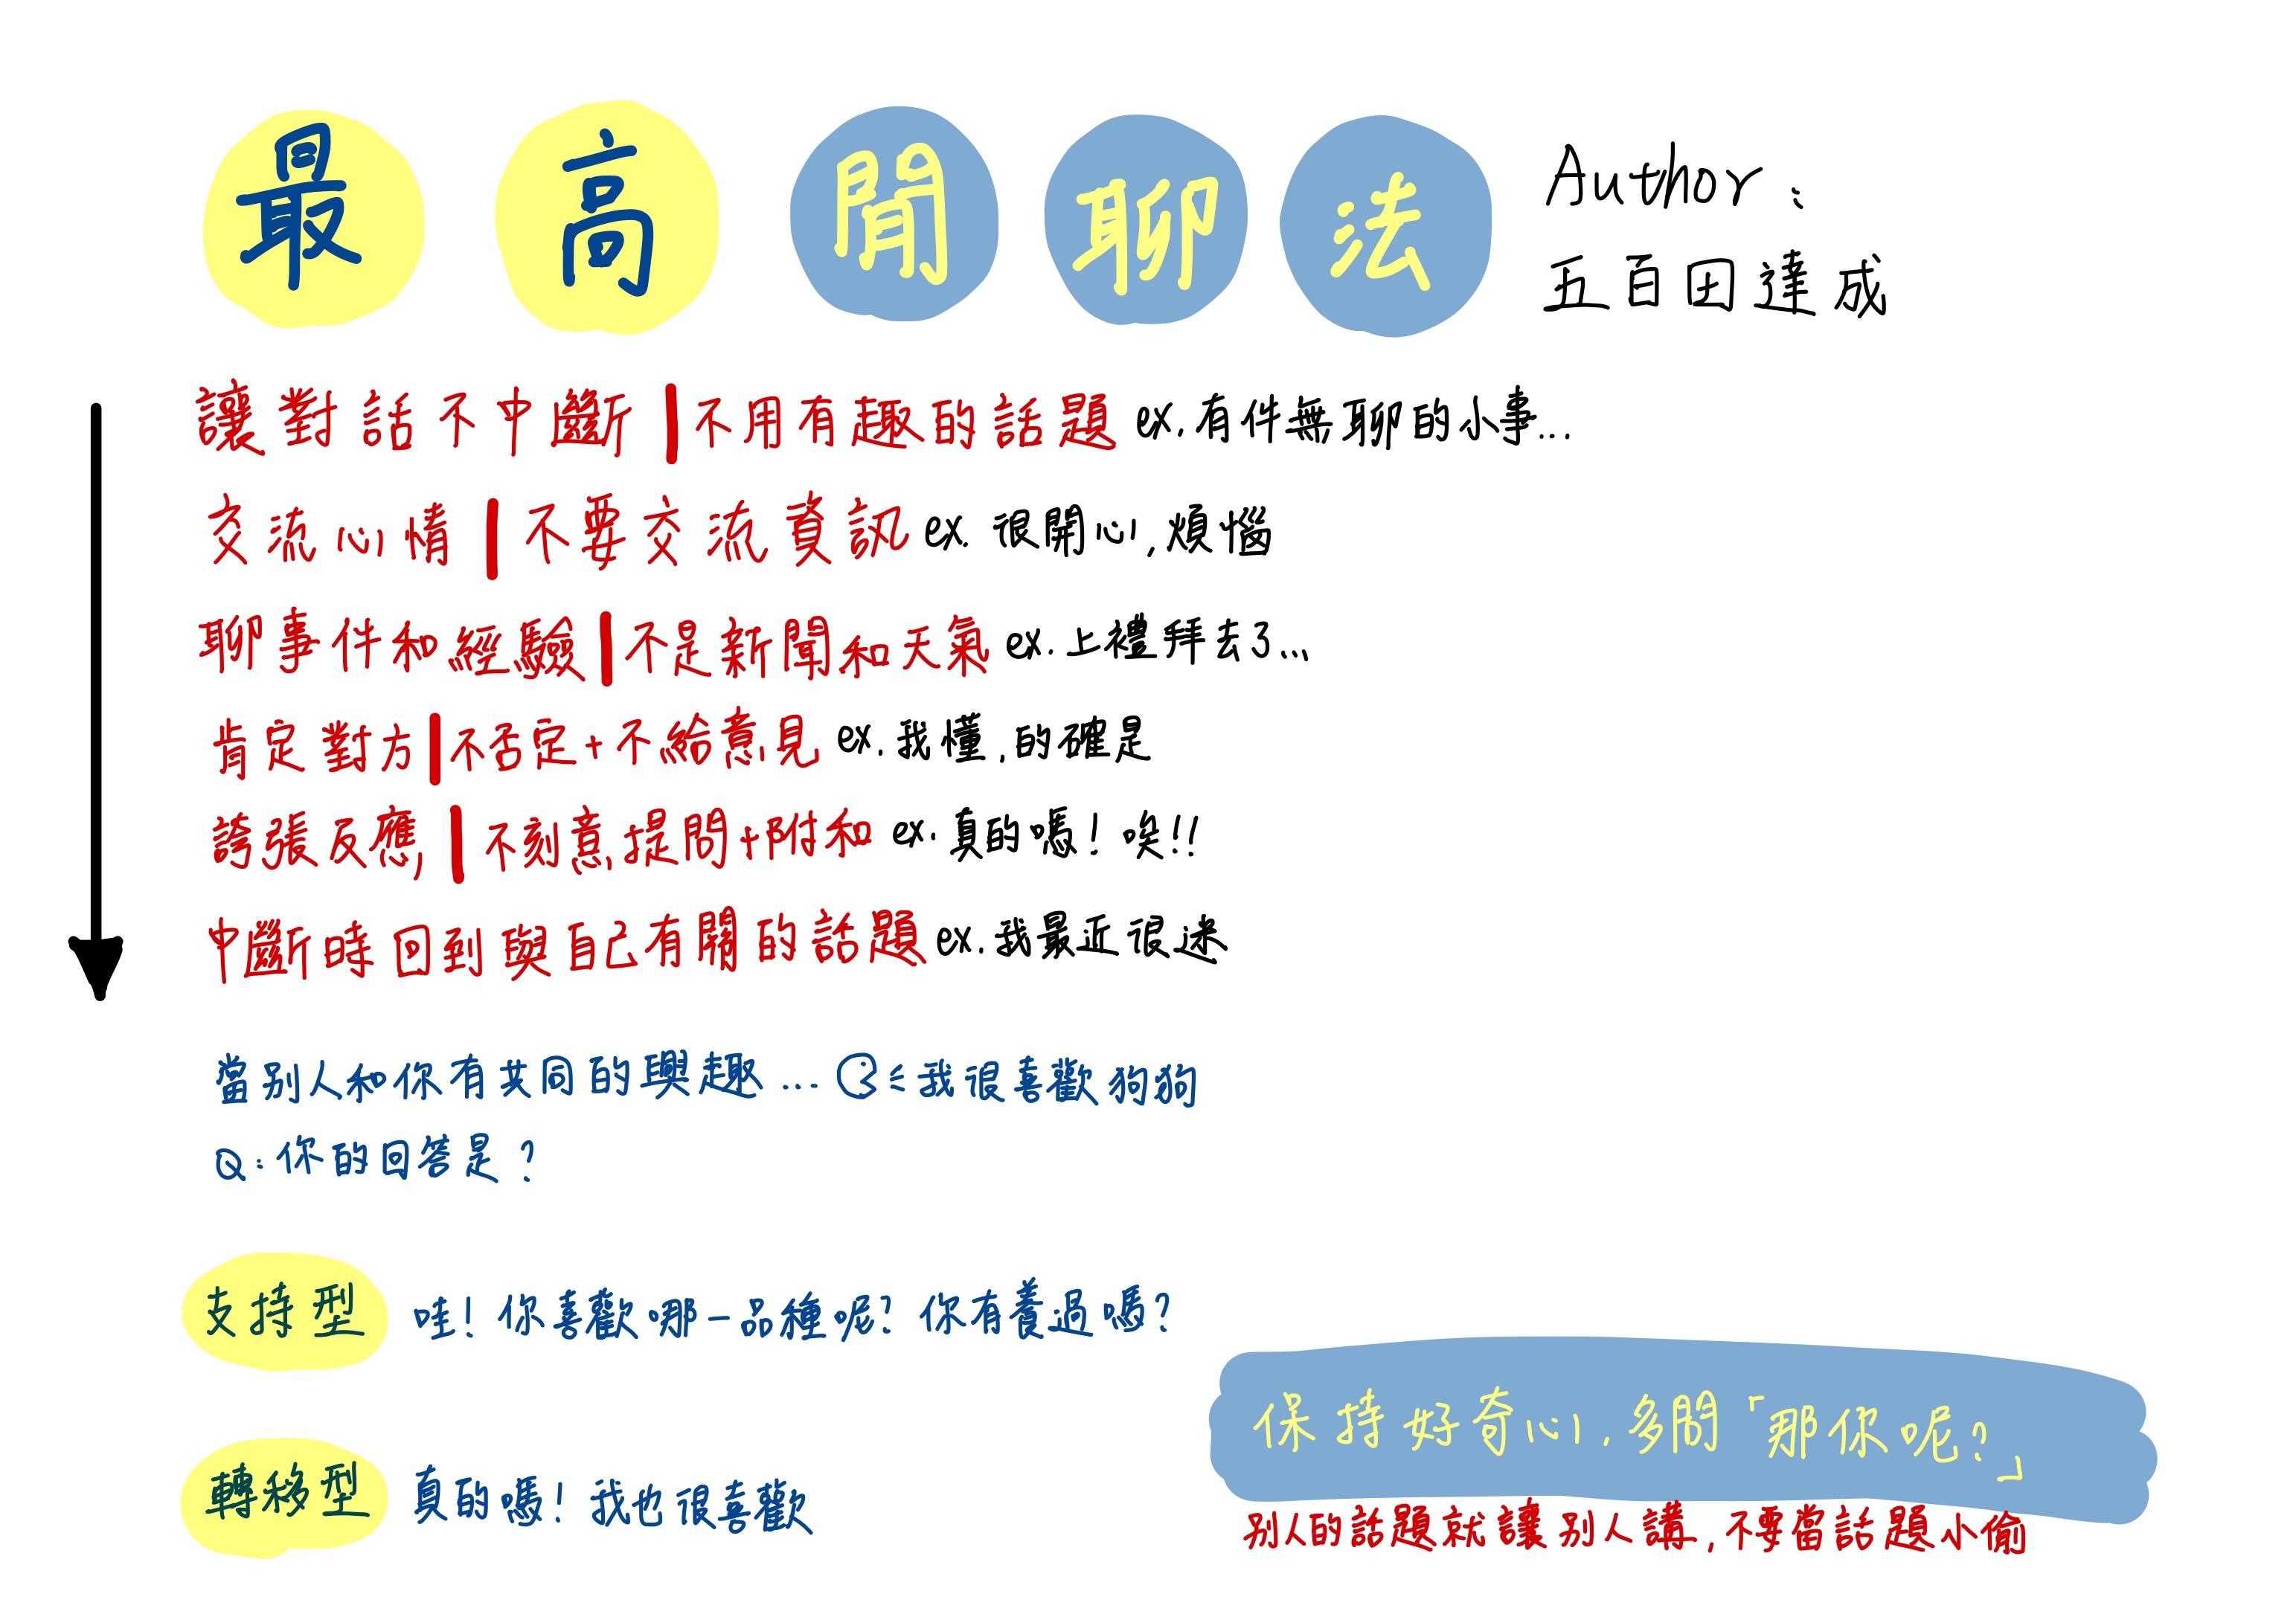 最高閒聊法
Author:
五百田達成
讓對話不中斷|不用有趣的話題 ex.有件無聊的小事...
交流心情|不要交流資訊 ex.很開心,煩惱
聊事件和經驗|不是新聞和天氣 ex.上禮拜去了...
肯定對方|不否定+不給意見 ex.我懂,的確是
誇張反應|不刻意提問+附和 ex.真的嗎!唉!!
中斷時回到與自己有關的話題 ex.我最近很迷
當別人和你有共同的興趣...我很喜歡狗狗
Q:你的回答是?
支持型 哇!你喜歡哪一品種呢?你有養過嗎?
轉移型 真的嗎!我也很喜歡
保持好奇心,多問「那你呢?」
別人的話題就讓別人講,不要當話題小偷